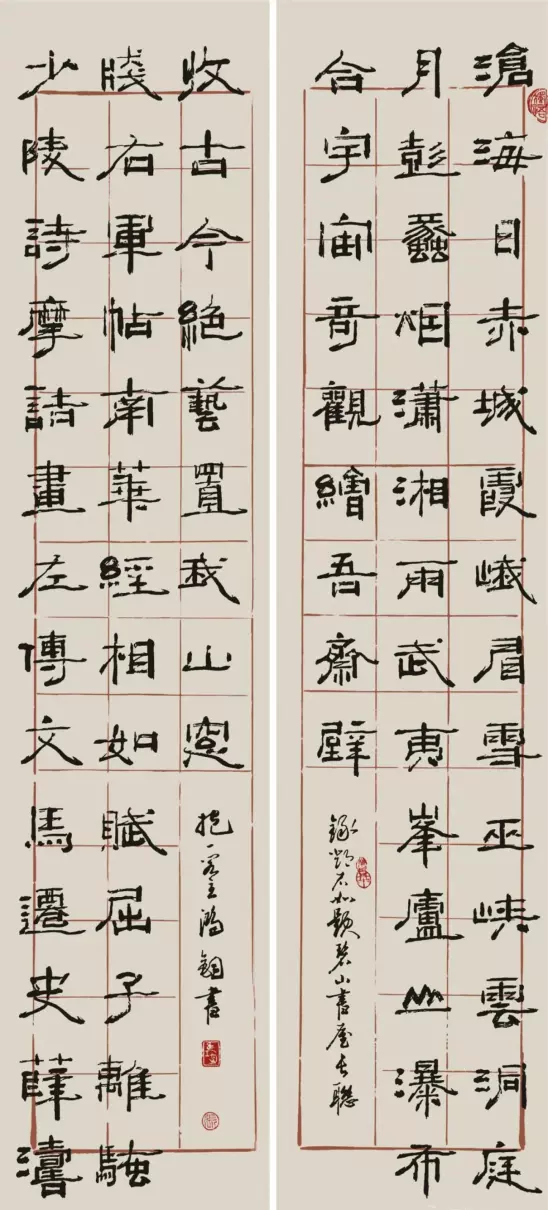 滄海日赤城霞峨眉雪巫峽雲洞庭
月彭蠡烟瀟湘雨武夷峯廬山瀑布
合宇宙奇觀繪吾齋壁
錄鄧石如題碧山書屋長聯
少陵詩摩詰畫左傳文馬遷史薛濤
牋右軍帖南華經相如賦屈子離騷
收古今絕藝置我山窗
抱一主鴻書